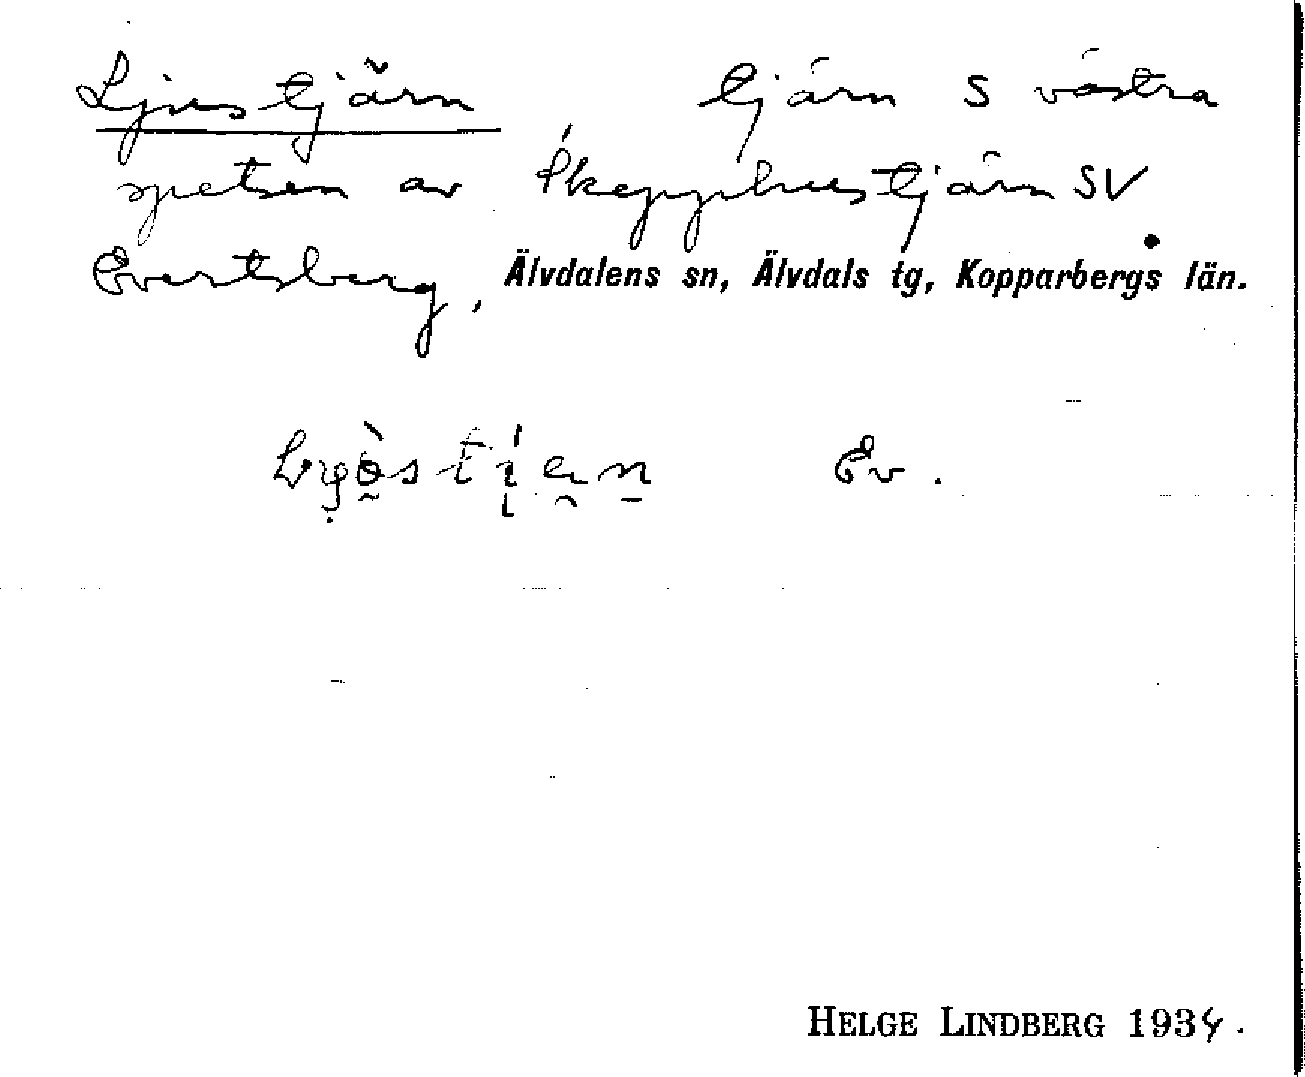 Ljustjärn tjärn S västra
spetsen av Skepphustjärn SV
Evertsberg, Älvdalens sn, Älvdals tg, Kopparbergs län.
Ev.
HELGE LINDBERG 1934.